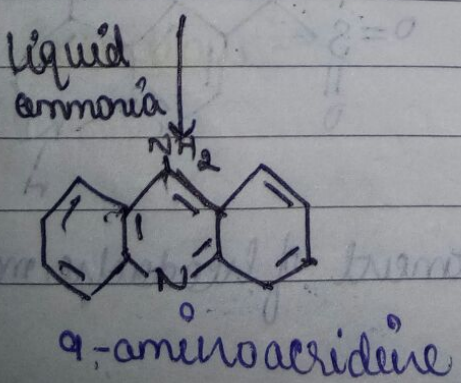 liquid
ammonia
NH2
N
9-aminoacridine